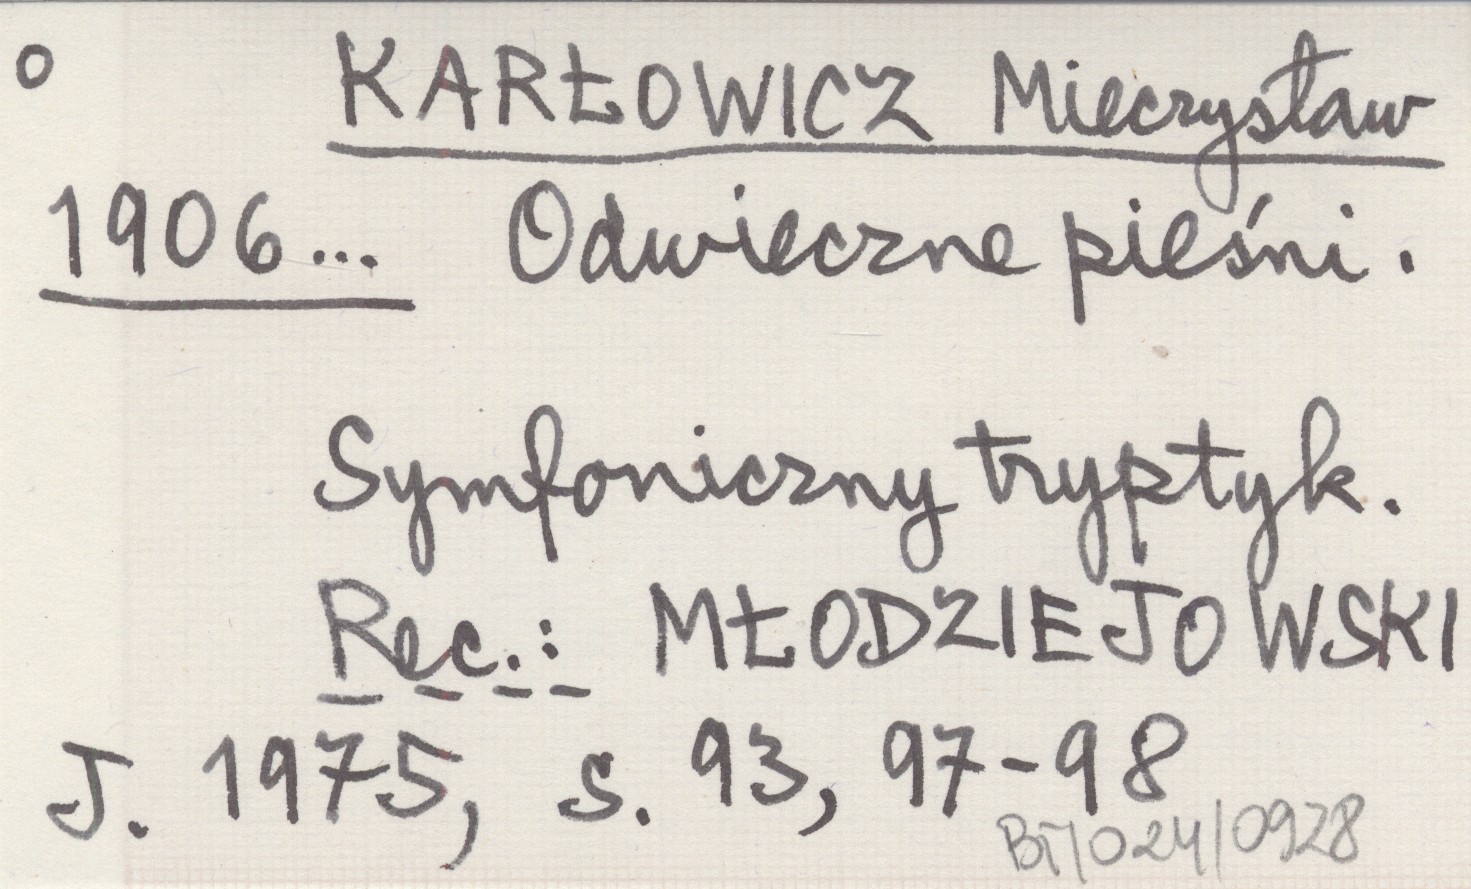 o KARŁOWICZ Mieczysław
1906... Odwieczne pieśni.
Symfoniczny tryptyk.
Rec.: MŁODZIEJOWSKI
J. 1975, s. 93, 97-98
BT/024/0928